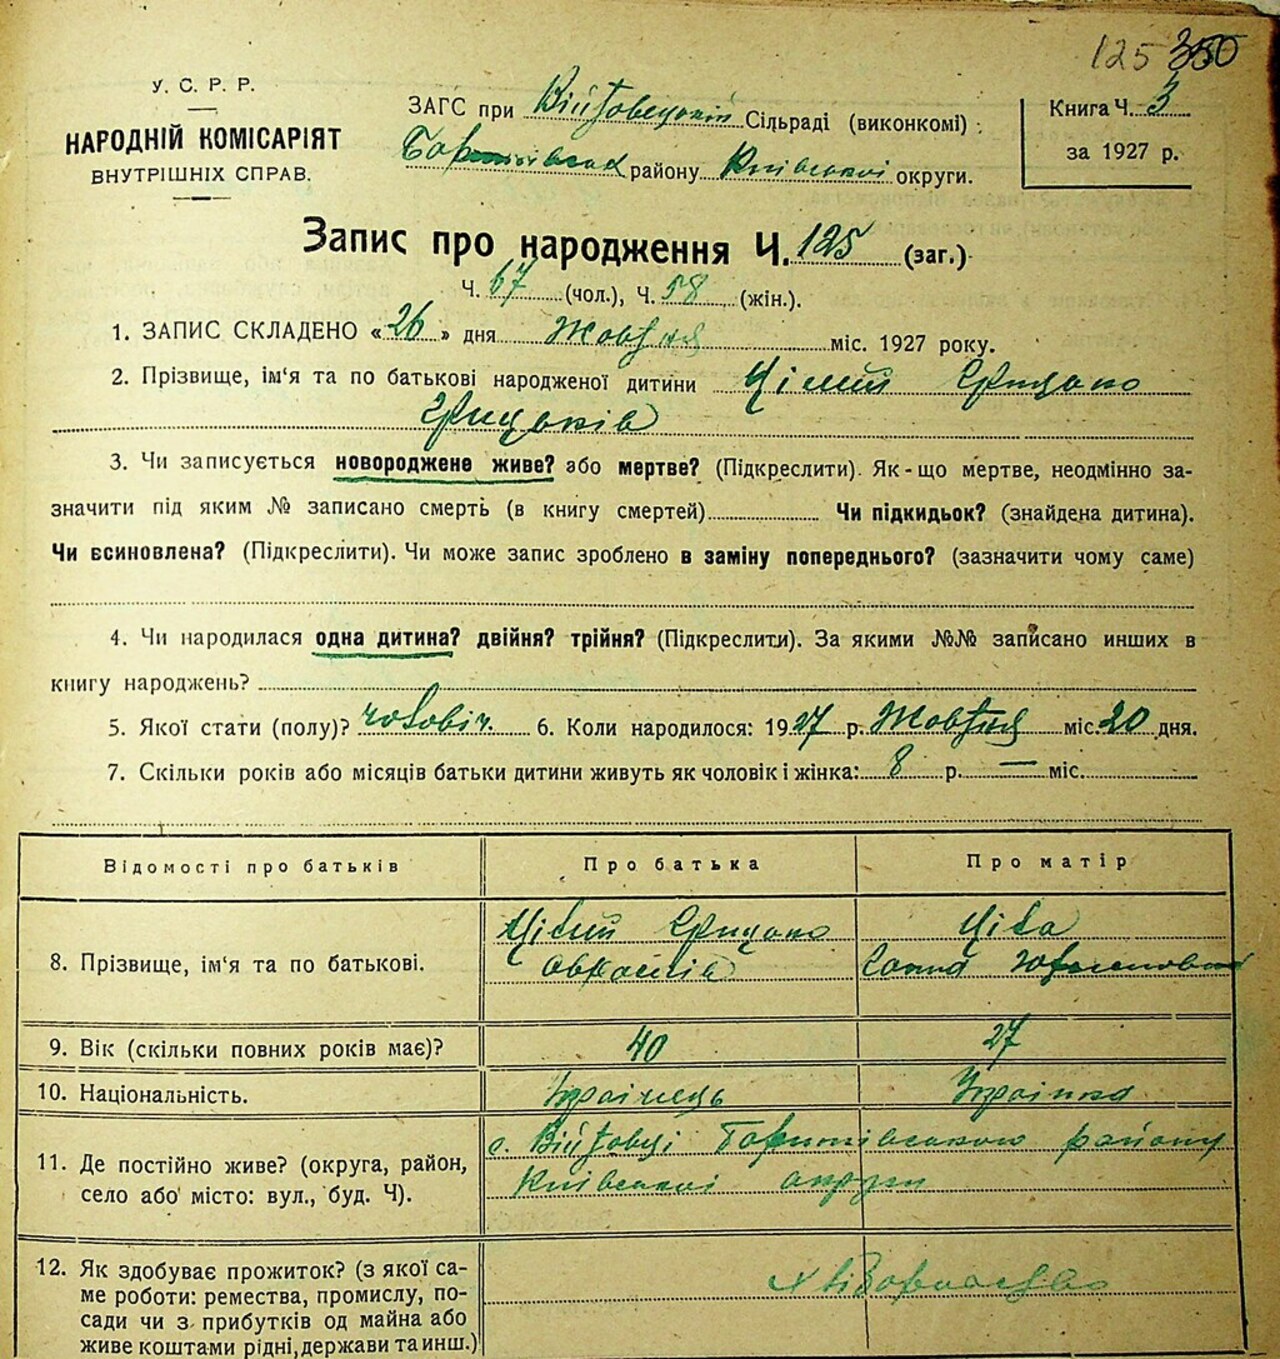 125 350
У. С. Р. Р.
НАРОДНІЙ КОМІСАРІЯТ
ВНУТРІШНІХ СПРАВ.
ЗАГС при Війтовецькій Сільраді (виконкомі)
району Київської округи.
Книга Ч. 3
за 1927 р.
Запис про народження Ч. 125 (заг.)
Ч. 67 (чол.), Ч. 58 (жін.).
1. ЗАПИС СКЛАДЕНО «26» дня Жовтня міс. 1927 року.
2. Прізвище, ім'я та по батькові народженої дитини Цілий Грицько
Грицьків
3. Чи записується новороджене живе? або мертве? (Підкреслити). Як-що мертве, неодмінно за-
значити під яким № записано смерть (в книгу смертей) Чи підкидьок? (знайдена дитина).
Чи всиновлена? (Підкреслити). Чи може запис зроблено в заміну попереднього? (зазначити чому саме)
4. Чи народилася одна дитина? двійня? трійня? (Підкреслити). За якими №№ записано инших в
книгу народжень?
5. Якої стати (полу)? чоловіч. 6. Коли народилося: 1927 р. Жовтня міс. 20 дня.
7. Скільки років або місяців батьки дитини живуть як чоловік і жінка: 8 р. — міс.
Відомості про батьків Про батька Про матір
8. Прізвище, ім'я та по батькові.
Цілий Грицько
Ціла
9. Вік (скільки повних років має)? 40 27
10. Національність. Українець Українка
11. Де постійно живе? (округа, район,
село або місто: вул., буд. Ч).
с. Війтовці району
Київської округи
12. Як здобуває прожиток? (з якої са-
ме роботи: ремества, промислу, по-
сади чи з прибутків од майна або
живе коштами рідні, держави та инш.)
хліборобство